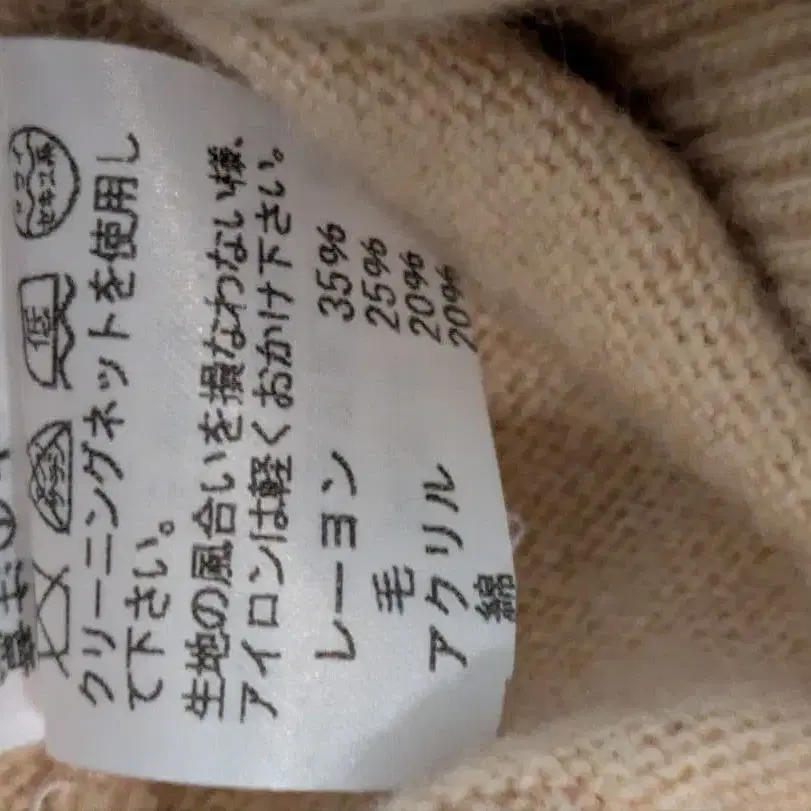 低
クリーニングネットを使用し
て下さい。
生地の風合いを損なわない様、
アイロンは軽くおかけ下さい。
レーヨン 35%
毛 25%
アクリル 20%
綿 20%